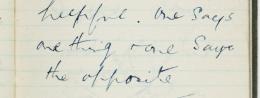 helpful. One says
one thing + one says
the opposite